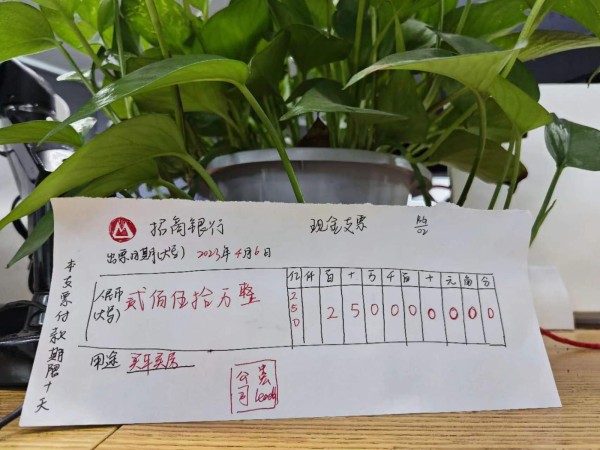 招商银行 现金支票
02
出票日期(大写) 2023年4月6日
人民币
(大写)
贰佰伍拾万整
亿 千 百 十 万 千 百 十 元 角 分
250 2 5 0 0 0 0 0 0 0
用途 买车买房
公司
Leads
本支票付款期限十天